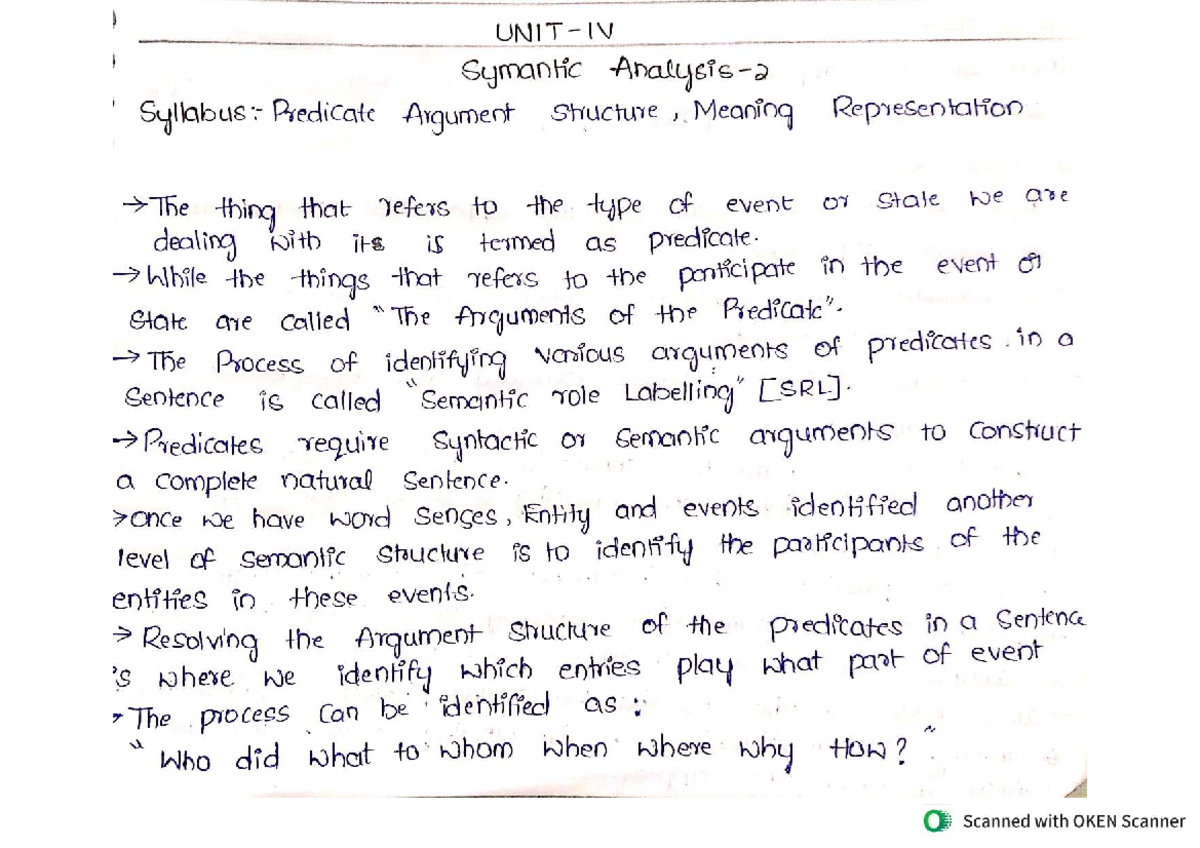 UNIT-IV
Symantic Analysis-2
Syllabus:- Predicate Argument Structure, Meaning Representation
→The thing that refers to the type of event or State we are
dealing with its is termed as predicate.
→While the things that refers to the participate in the event or
State are called "The Arguments of the Predicate".
→The Process of identifying various arguments of predicates in a
Sentence is called "Semantic role Labelling" [SRL].
→Predicates require Syntactic or Semantic arguments to construct
a complete natural Sentence.
→once we have word senses, Entity and events identified another
level of semantic Structure is to identify the participants of the
entities in these events.
→ Resolving the Argument Structure of the predicates in a Sentence
is where we identify which entries play what part of event
→The process can be identified as :
"Who did what to whom when where why How?"
Scanned with OKEN Scanner